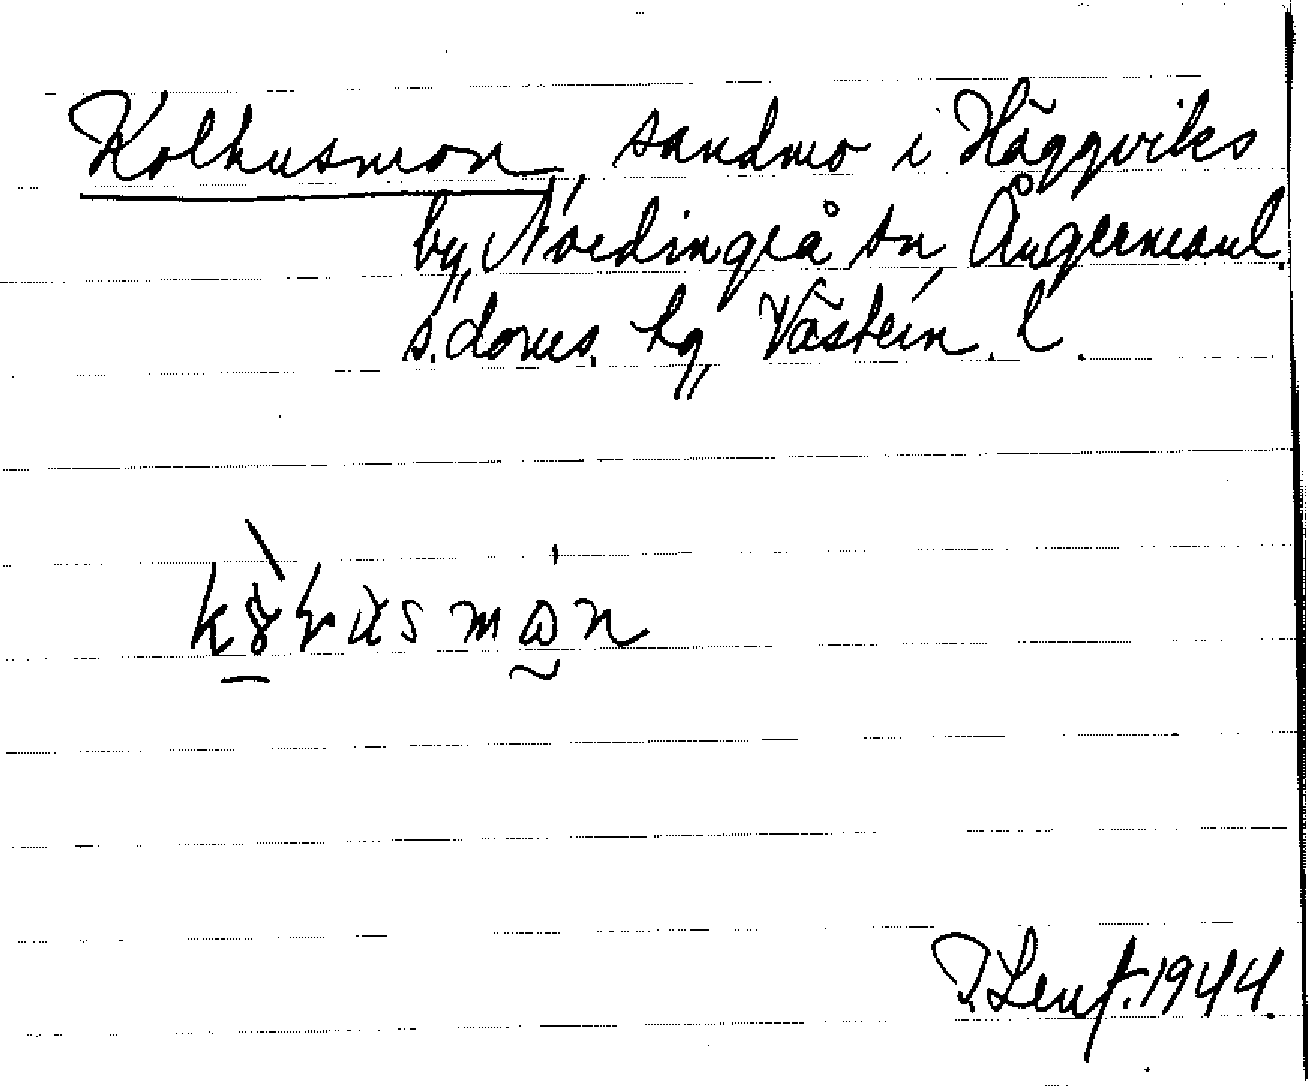 Kolhusmon, sandmo i Häggviks
by, Nordingrå sn, Ångermanl.
s. doms. hg, Västern. l.
T. Lenf. 1944.